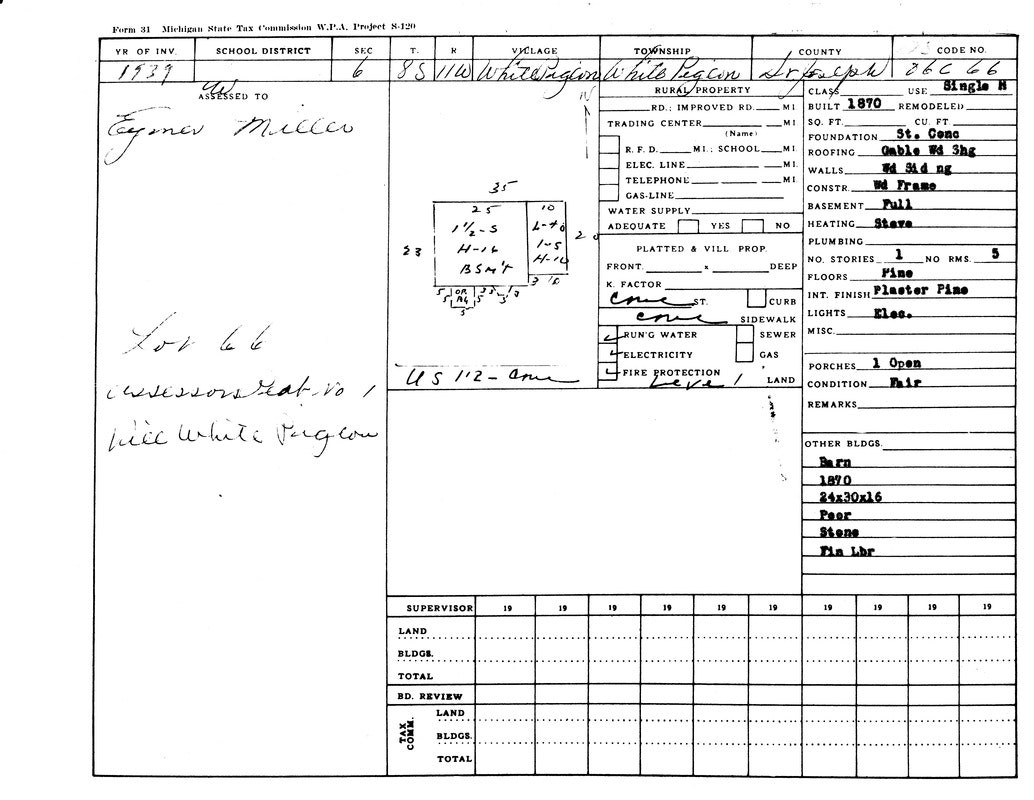 Form 31 Michigan State Tax Commission W.P.A. Project S-120
YR OF INV. SCHOOL DISTRICT SEC T. R VILLAGE TOWNSHIP COUNTY CODE NO.
1939 6 8S 11W White Pigeon White Pigeon St Joseph 66
ASSESSED TO
W
Miller
Lot 66
Assessors Plat No 1
Vill White Pigeon
N
35
25 10
1 1/2-S
H-16
BSM'T
23
L-40
1-S
H-10
3 10
5 OP. 33
5 PG. 5
5
US 112 - Conc
RURAL PROPERTY
RD.; IMPROVED RD. MI
TRADING CENTER MI.
(Name)
R. F. D. MI.; SCHOOL MI.
ELEC. LINE MI.
TELEPHONE MI.
GAS-LINE
WATER SUPPLY
ADEQUATE YES NO
PLATTED & VILL PROP.
FRONT. x DEEP
K. FACTOR
Conc ST. CURB
Conc SIDEWALK
✓ RUN'G WATER SEWER
✓ ELECTRICITY GAS
✓ FIRE PROTECTION
Level LAND
CLASS USE Single H
BUILT 1870 REMODELED
SQ. FT. CU. FT.
FOUNDATION St. Conc
ROOFING Gable Wd Shg
WALLS Wd Sid ng
CONSTR. Wd Frame
BASEMENT Full
HEATING Stove
PLUMBING
NO. STORIES 1 NO RMS. 5
FLOORS Pine
INT. FINISH Plaster Pine
LIGHTS Elec.
MISC.
PORCHES 1 Open
CONDITION Fair
REMARKS
OTHER BLDGS.
Barn
1870
24x30x16
Poor
Stone
Fin Lbr
SUPERVISOR 19 19 19 19 19 19 19 19 19 19
LAND
BLDGS.
TOTAL
BD. REVIEW
TAX COMM.
LAND
BLDGS.
TOTAL